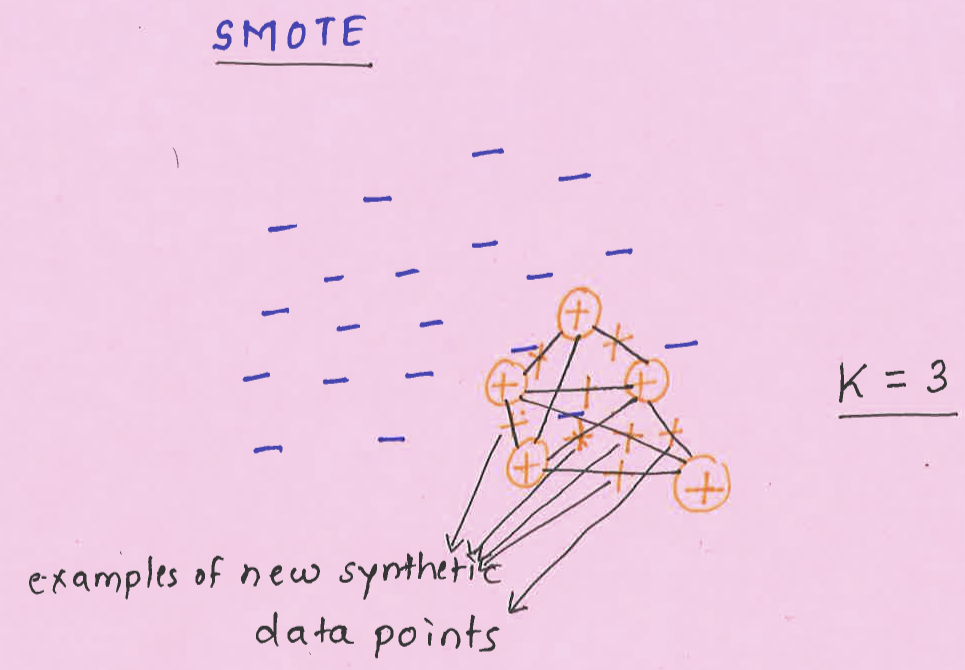 SMOTE
K = 3
examples of new synthetic
data points